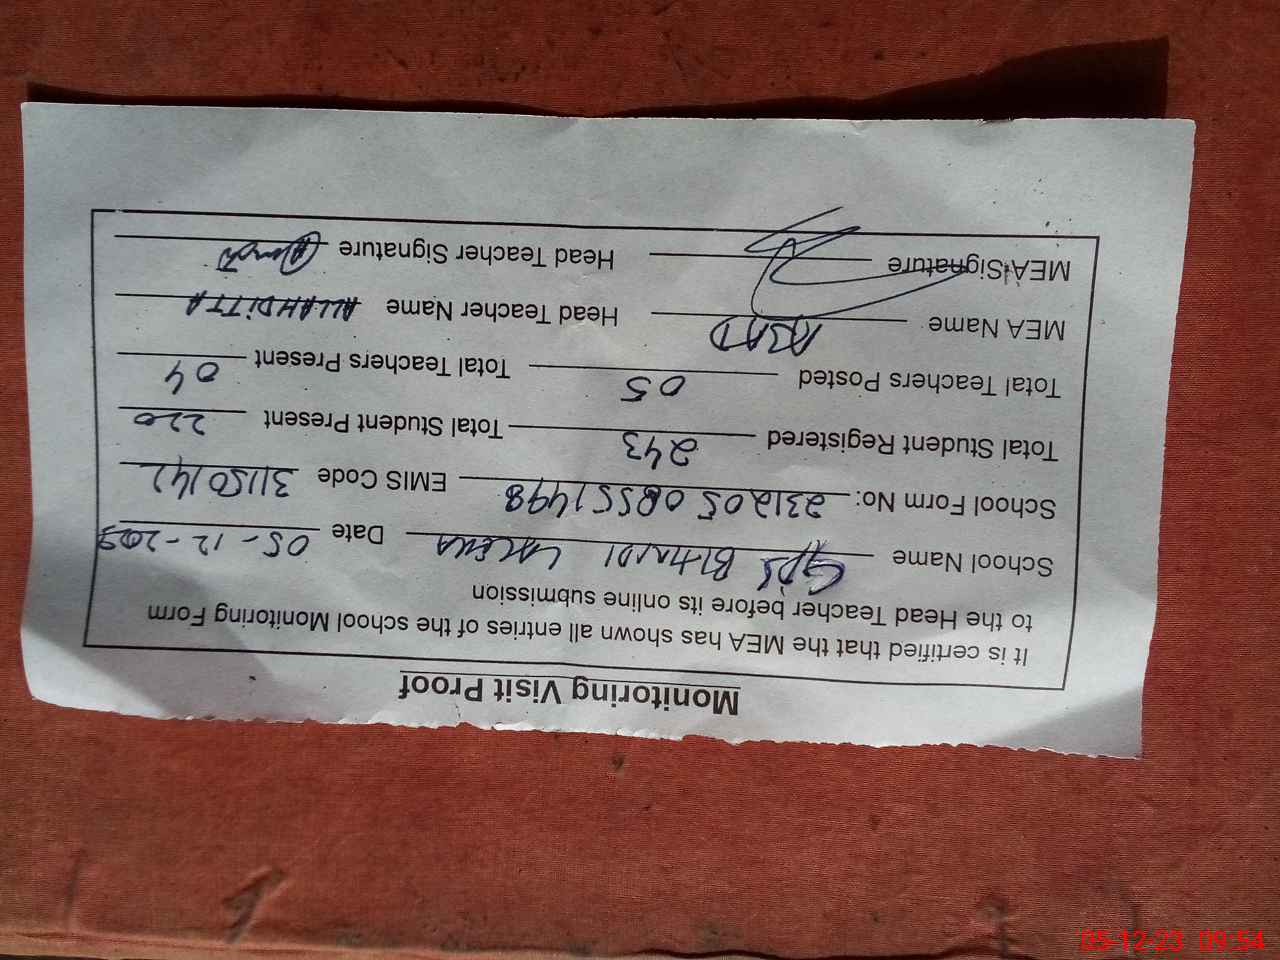 Monitoring Visit Proof
It is certified that the MEA has shown all entries of the school Monitoring Form
to the Head Teacher before its online submission
School Name GPS Date 05-12-2023
School Form No: EMIS Code 31150142
Total Student Registered 243 Total Student Present 220
Total Teachers Posted 05 Total Teachers Present 04
MEA Name Head Teacher Name ALLAHDITTA
MEA Signature Head Teacher Signature
05-12-23 09:54